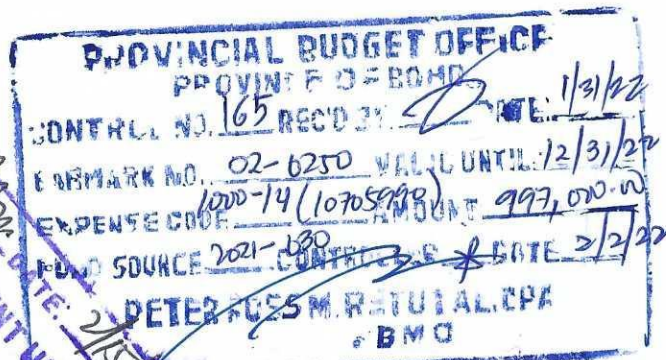 PROVINCIAL BUDGET OFFICE
PROVINCE OF BOHOL
CONTROL NO. 165 REC'D BY: DATE: 1/31/22
EARMARK NO. 02-6250 VALID UNTIL: 12/31/22
EXPENSE CODE 1000-14 (10705990) AMOUNT 997,000.00
FUND SOURCE 2021-630 CONTROLLER DATE 2/2/22
PETER ROSS M. RETUTAL, CPA
PBMO
DATE: 2/15